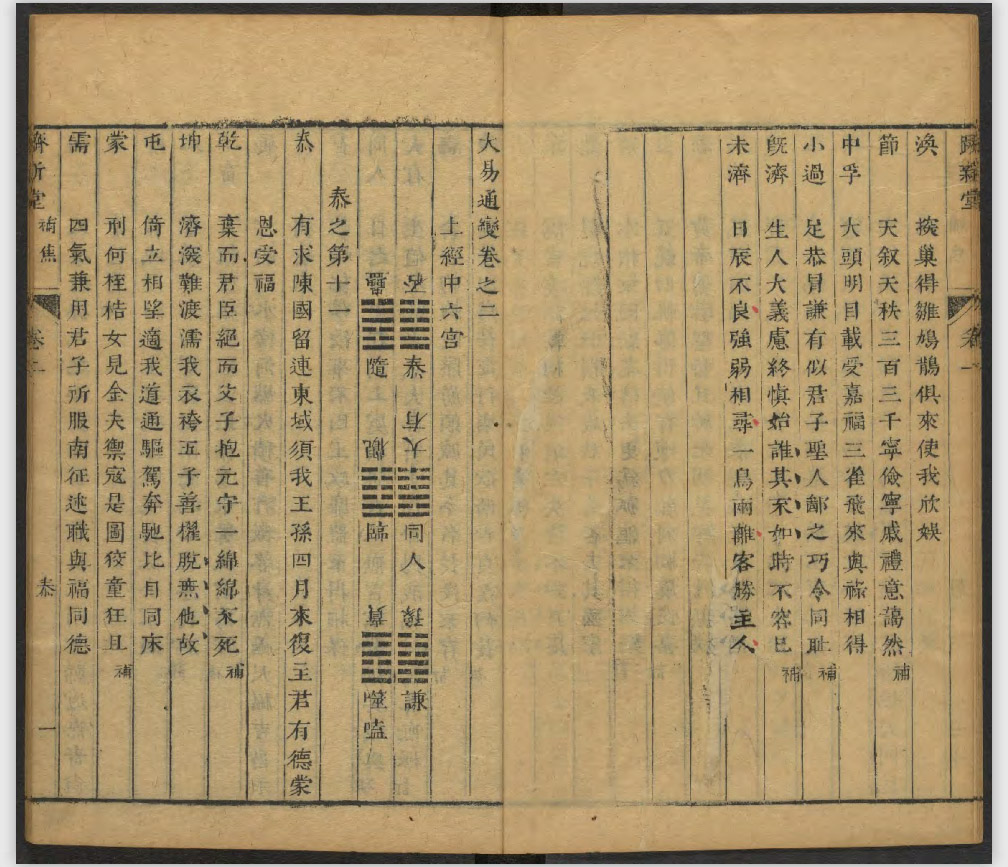 渙　揬巢得雛鳩鵲俱來使我欣娛
節　天叙天秩三百三千寧儉寧戚禮意藹然補
中孚　大頭明目載受嘉福三雀飛來與祿相得
小過　足恭冒謙有似君子聖人鄙之巧令同恥補
旣濟　生人大義慮終愼始誰其來如時不容已補
未濟　日辰不良強弱相尋一鳥兩離客勝主人
大易通變卷之二
上經中六宮
否　泰　大有　同人　豫　謙
蠱　隨　觀　臨　賁　噬嗑
泰之第十一
泰　有求陳國留連東域須我王孫四月來復主君有德蒙
恩受福
乾　葉而君臣絕而父子抱元守　綿綿不死補
坤　濟深難渡濡我衣袴五子善櫂脫無他故
屯　倚立相望適我道通驅駕奔馳比目同床
蒙　刑何桎梏女見金夫禦寇是圖狡童狂且補
需　四氣兼用君子所服南征述職與福同德
補焦　卷二　泰　一